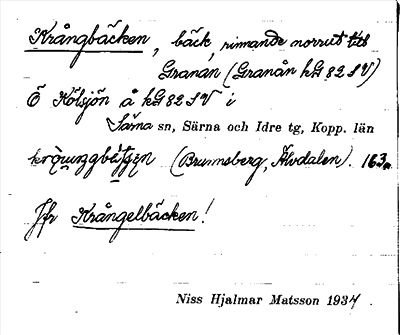 Krångbäcken, bäck, rinnande norrut till
Granan (Granån kG 82 SV)
Ö Kölsjön å kG 82 SV i
Särna sn, Särna och Idre tg, Kopp. län
(Brunnsberg, Älvdalen). 163a.
Jfr Krångelbäcken!
Niss Hjalmar Matsson 1934.